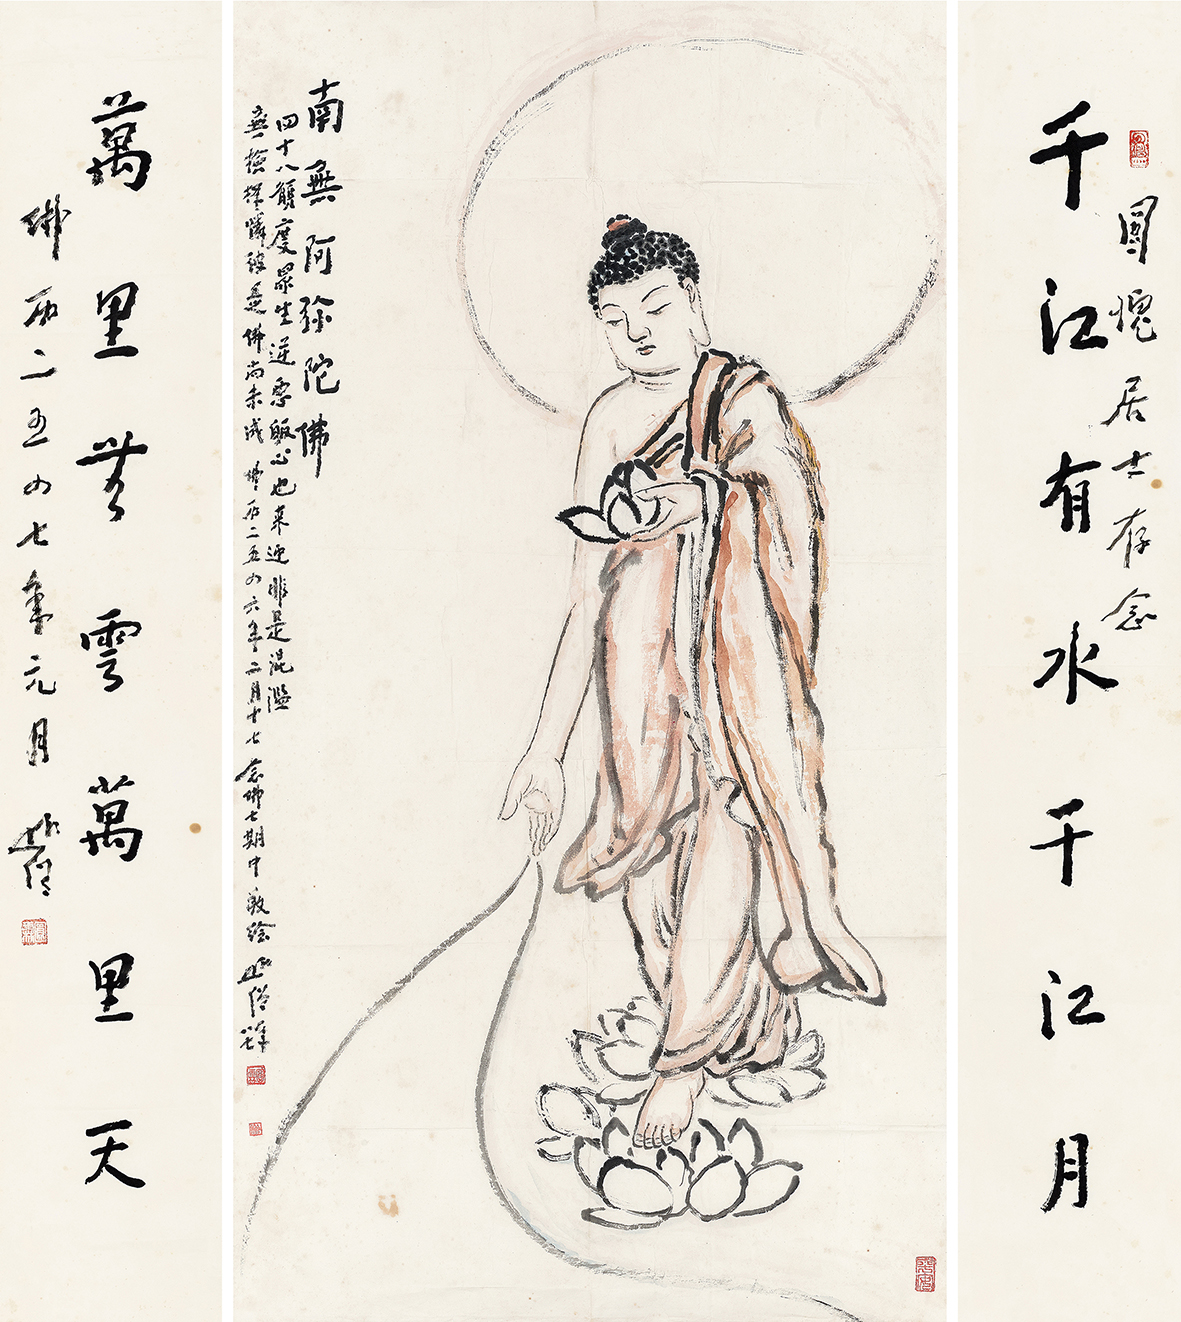 圓愧居士存念
千江有水千江月
南無阿彌陀佛
四十八願度眾生逆惡皈心也來迎非是混濫
無揀擇憐彼是佛尚未成 佛历二五〇六年二月十七 念佛七期中敬繪
萬里無雲萬里天
佛历二五〇七年元月